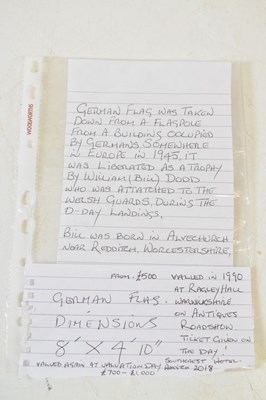 GERMAN FLAG WAS TAKEN
DOWN FROM A FLAGPOLE
FROM A BUILDING OCCUPIED
BY GERMANS, SOMEWHERE
IN EUROPE IN 1945, IT
WAS LIBERATED AS A TROPHY
BY WILLIAM (BILL) DODD
WHO WAS ATTATCHED TO THE
WELSH GUARDS, DURING THE
D-DAY LANDINGS,
BILL WAS BORN IN ALVECHURCH
NEAR REDDITCH, WORCESTERSHIRE,
FROM £500 VALUED IN 1990
AT RAGLEY HALL
GERMAN FLAG WARWICKSHIRE
ON ANTIQUES
DIMENSIONS ROADSHOW
TICKET GIVEN ON
8' X 4' 10" THE DAY
VALUED AGAIN AT VALUATION DAY HOTEL 2018
£700 - £1000